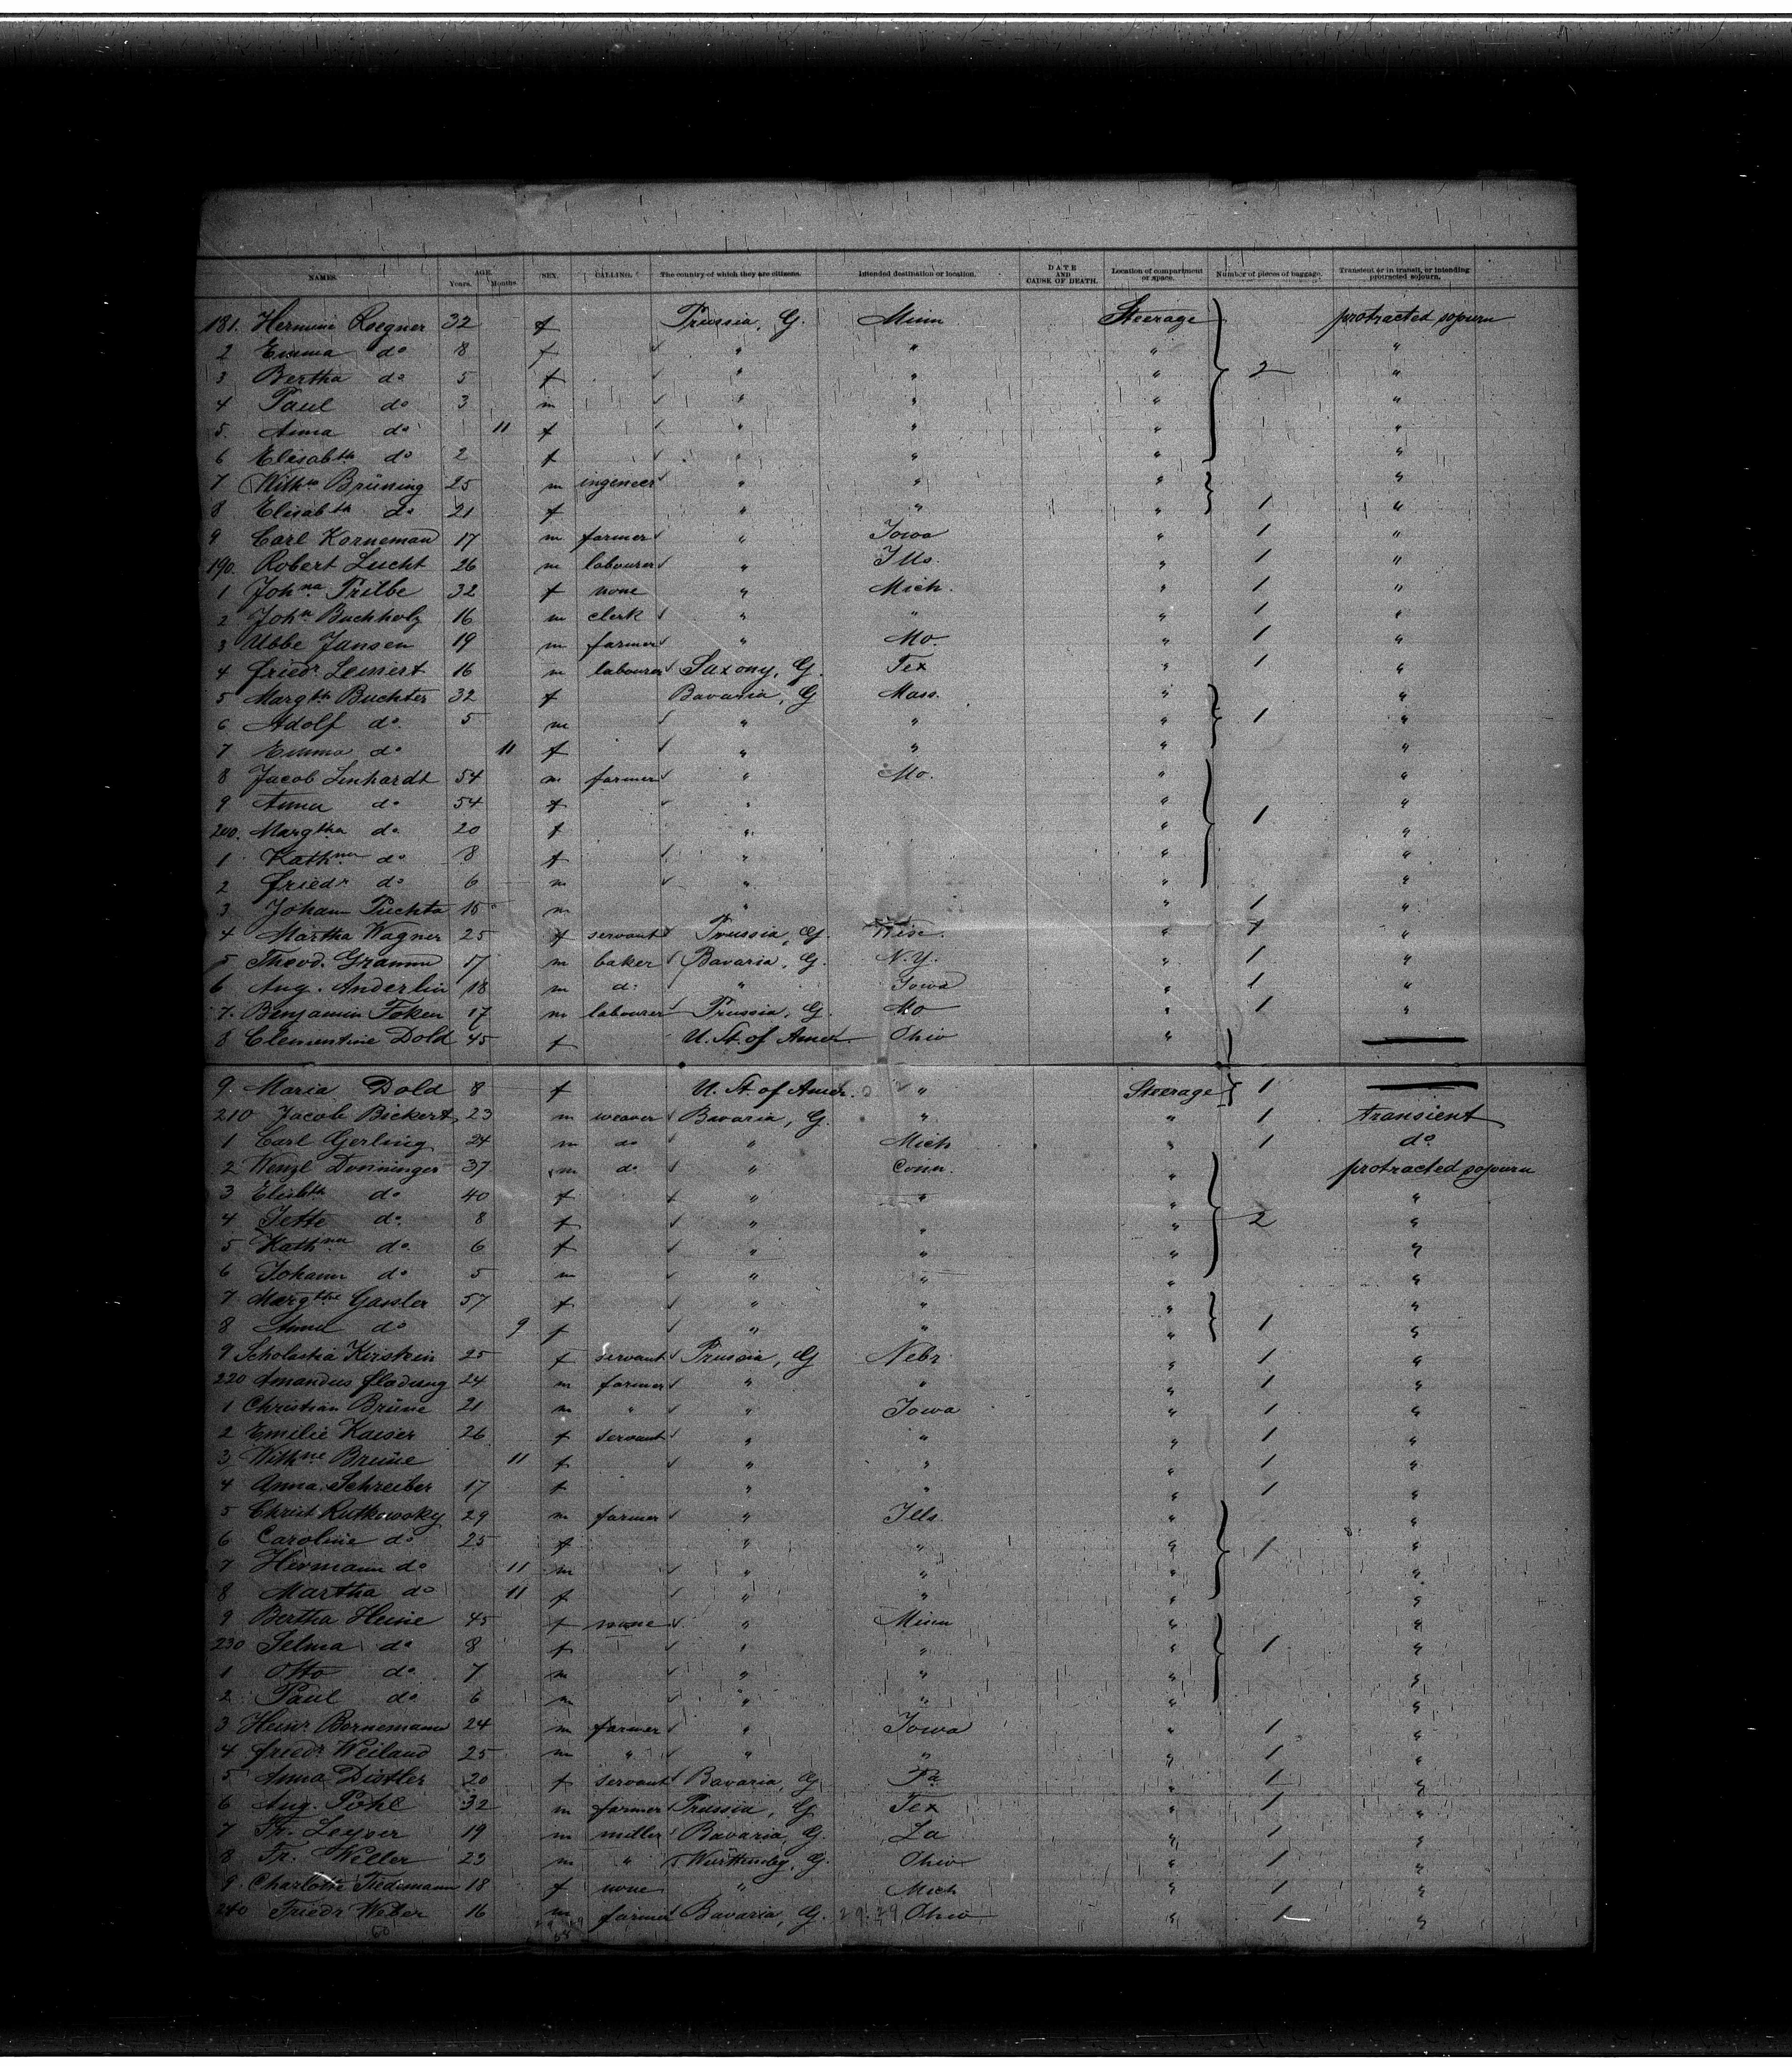 NAMES. AGE. Years. Months. SEX. CALLING. The country of which they are citizens. Intended destination or location. DATE AND CAUSE OF DEATH. Location of compartment or space. Number of pieces of baggage. Transient or in transit, or intending protracted sojourn.
181. Hermine Roegner 32 f Prussia, G. Minn Steerage protracted sojourn
2 Emma do 8 f " " " "
3 Bertha do 5 f " " " 2 "
4 Paul do 3 m " " " "
5. Anna do 11 f " " " "
6 Elisabth do 2 f " " " "
7 Wilhm Brüning 25 m ingeneer " " " "
8 Elisabth do 21 f " " " 1 "
9 Carl Korneman 17 m farmer " Iowa " 1 "
190. Robert Lucht 26 m labourer " Ills. " 1 "
1 Johna Prilbe 32 f none " Mich. " 1 "
2 John Buchholz 16 m clerk " " " 1 "
3 Ubbe Jansen 19 m farmer " Mo. " 1 "
4 Friedr Leinert 16 m labourer Saxony, G. Tex " 1 "
5 Margth Buchter 32 f Bavaria, G Mass. " "
6 Adolf do 5 m " " " 1 "
7 Emma do 11 f " " " "
8 Jacob Linhardt 54 m farmer " Mo. " "
9 Anna do 54 f " " "
200. Margtha do 20 f " " 1 "
1 Kathna do 8 f " " "
2 Friedr do 6 m " " "
3 Johann Puchta 15 m " " 1 "
4 Martha Wagner 25 f servant Prussia, G. Wisc. " 1 "
5 Theod. Gramm 17 m baker Bavaria, G. N.Y. " 1 "
6 Aug. Anderlin 18 m do " Iowa " 1 "
7. Benjamin Foken 17 m labourer Prussia, G. Mo " 1 "
8 Clementine Dold 45 f U. St. of Amer. Ohio "
9. Maria Dold 8 f U. St. of Amer. " Steerage 1
210 Jacob Bickert 23 m weaver Bavaria, G. " " 1 transient
1 Carl Gerling 24 m do " Mich " 1 do
2 Wenzl Donninger 37 m do " Conn. " protracted sojourn
3 Elisbth do 40 f " " " "
4 Jette do 8 f " " " 2 "
5 Kathna do 6 f " " " "
6 Johann do 5 m " " " "
7 Margthe Gassler 57 f " " " "
8 Anna do 9 f " " " 1 "
9 Scholastia Kirstein 25 f servant Prussia, G Nebr " 1 "
220 Amandus Fladung 24 m farmer " " " 1 "
1 Christian Brüne 21 m " " Iowa " 1 "
2 Emilie Kaiser 26 f servant " " " 1 "
3 Wilhne Brüne 11 f " " " 1 "
4 Anna Schreiber 17 f " " " 1 "
5 Christ Rutkowsky 29 m farmer " Ills. " "
6 Caroline do 25 f " " " 1 "
7 Hermann do 11 m " " " "
8 Martha do 11 f " " " "
9 Bertha Heine 45 f none " Minn " "
230 Selma do 8 f " " " 1 "
1 Otto do 7 m " " " "
2 Paul do 6 m " " " "
3 Heinr Bornemann 24 m farmer " Iowa " 1 "
4 Friedr Weiland 25 m " " " " 1 "
5 Anna Distler 20 f servant Bavaria, G Pa " 1 "
6 Aug. Pohl 32 m farmer Prussia, G Tex " 1 "
7 Fr. Leyser 19 m miller Bavaria, G. La " 1 "
8 Fr. Weller 23 m " Württembg, G. Ohio " 1 "
9 Charlotte Tiedemann 18 f none " Mich " 1 "
240 Friedr Weber 16 m farmer Bavaria, G. Ohio " 1 "
60